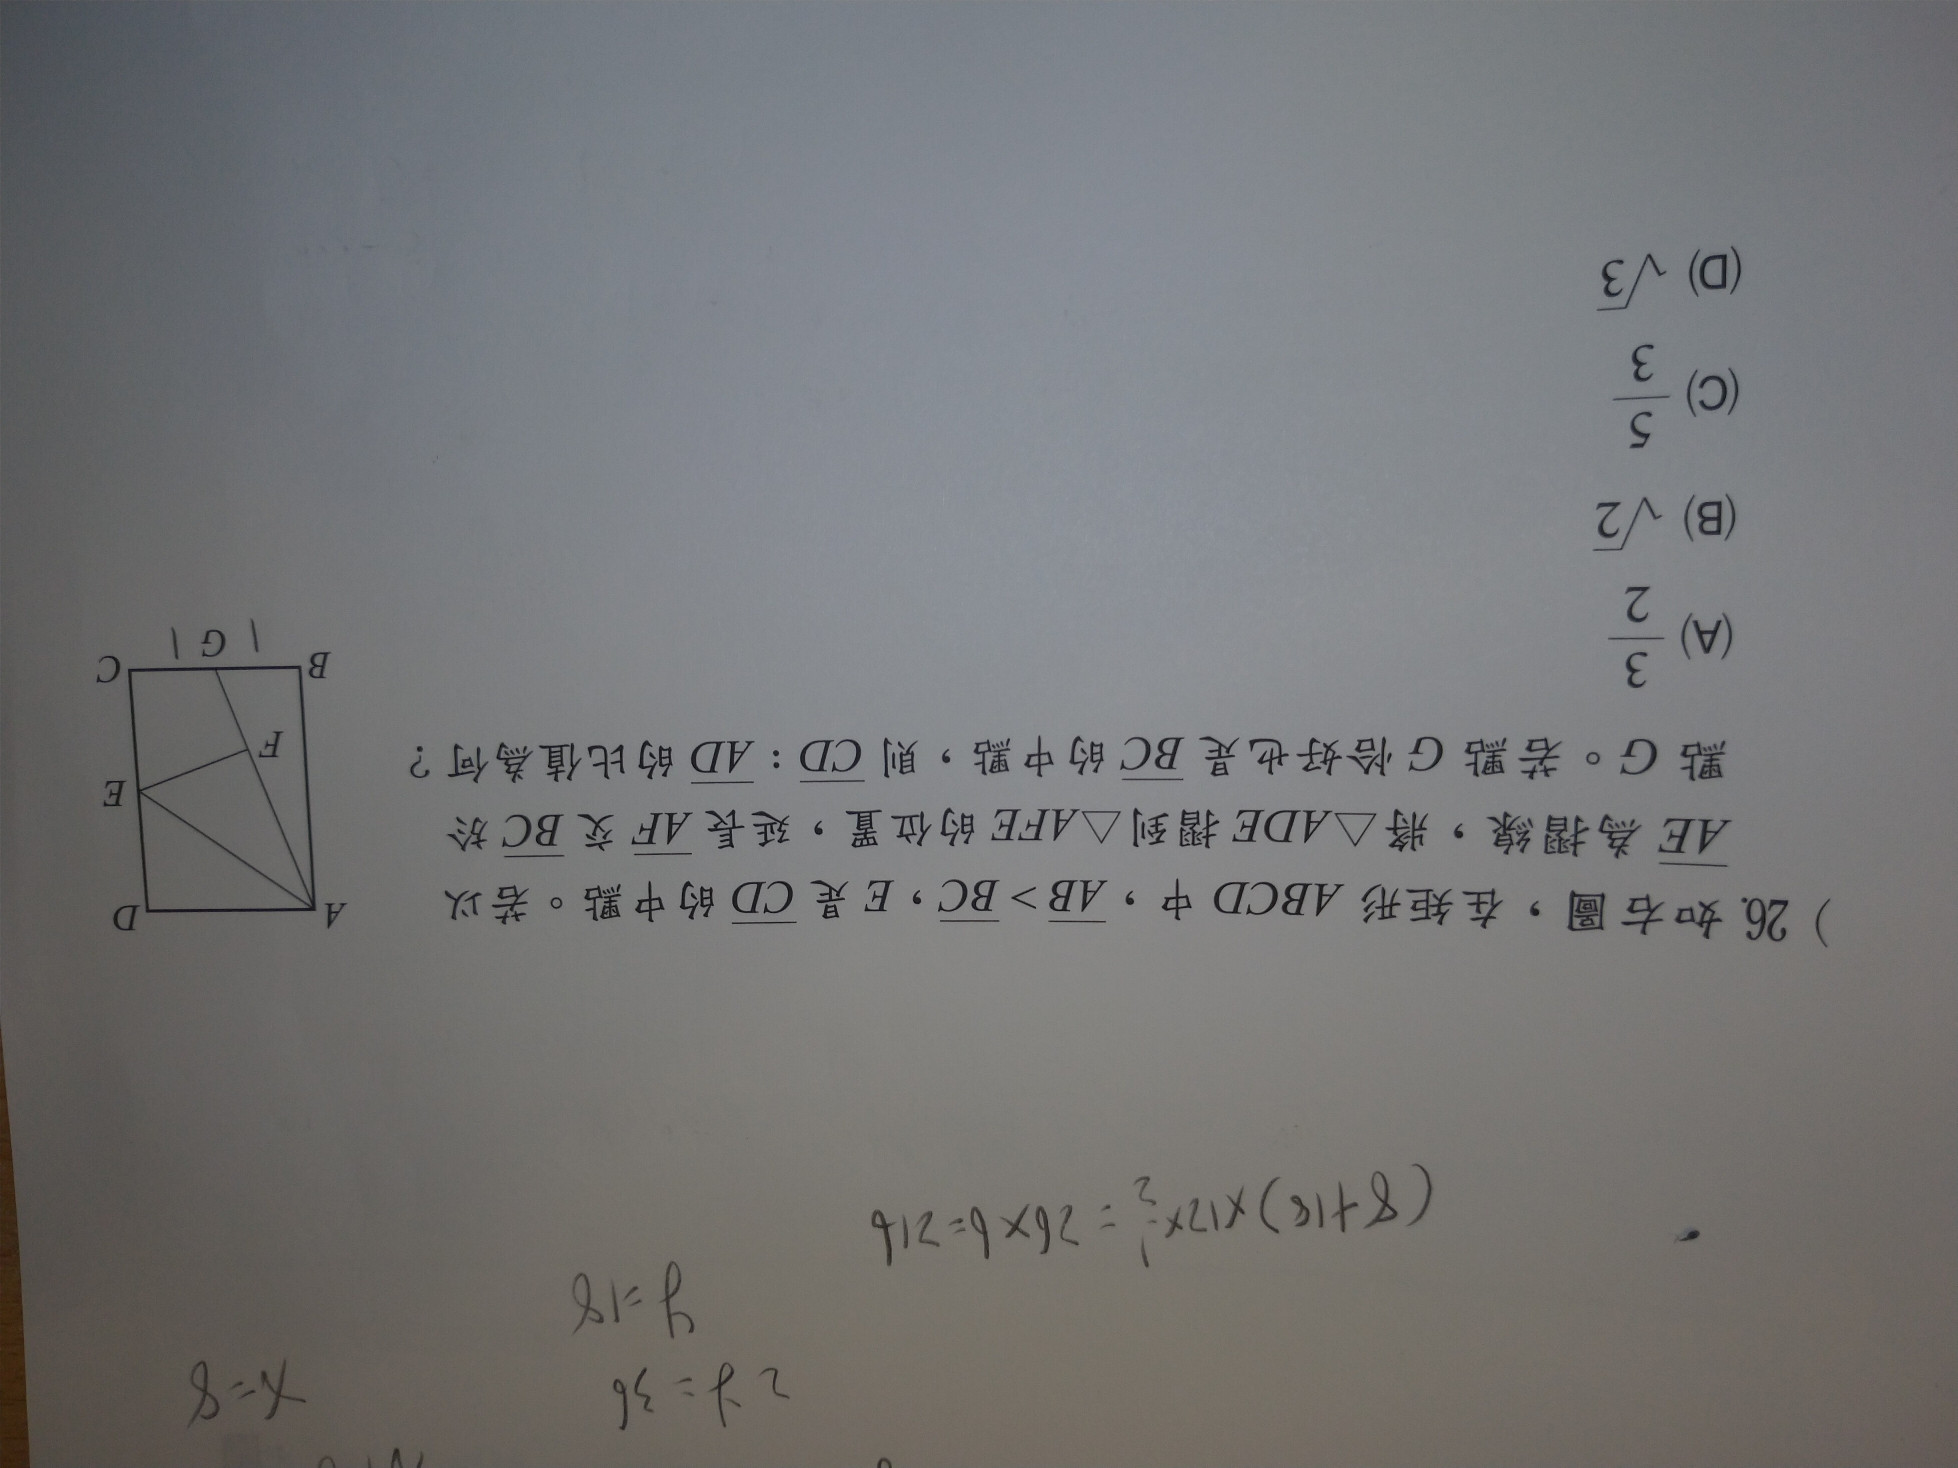 x=8
2y=36
y=18
(8+18)×12×1/2=26×6=216
)26. 如右圖，在矩形 ABCD 中，AB>BC，E 是 CD 的中點。若以
AE 為摺線，將△ADE 摺到△AFE 的位置，延長 AF 交 BC 於
點 G。若點 G 恰好也是 BC 的中點，則 CD：AD 的比值為何？
(A) 3/2
(B) √2
(C) 5/3
(D) √3
A D
E
F
B G C
1 1